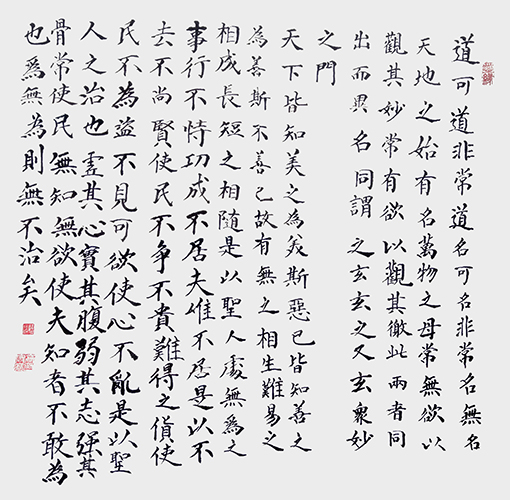 道可道非常道名可名非常名無名
天地之始有名萬物之母常無欲以
觀其妙常有欲以觀其徼此兩者同
出而異名同謂之玄玄之又玄衆妙
之門
天下皆知美之為美斯惡已皆知善之
為善斯不善已故有無之相生難易之
相成長短之相隨是以聖人處無爲之
事行不恃功成不居夫唯不居是以不
去不尚賢使民不争不貴難得之貨使
民不為盜不見可欲使心不亂是以聖
人之治也虛其心實其腹弱其志强其
骨常使民無知無欲使夫知者不敢為
也爲無為則無不治矣